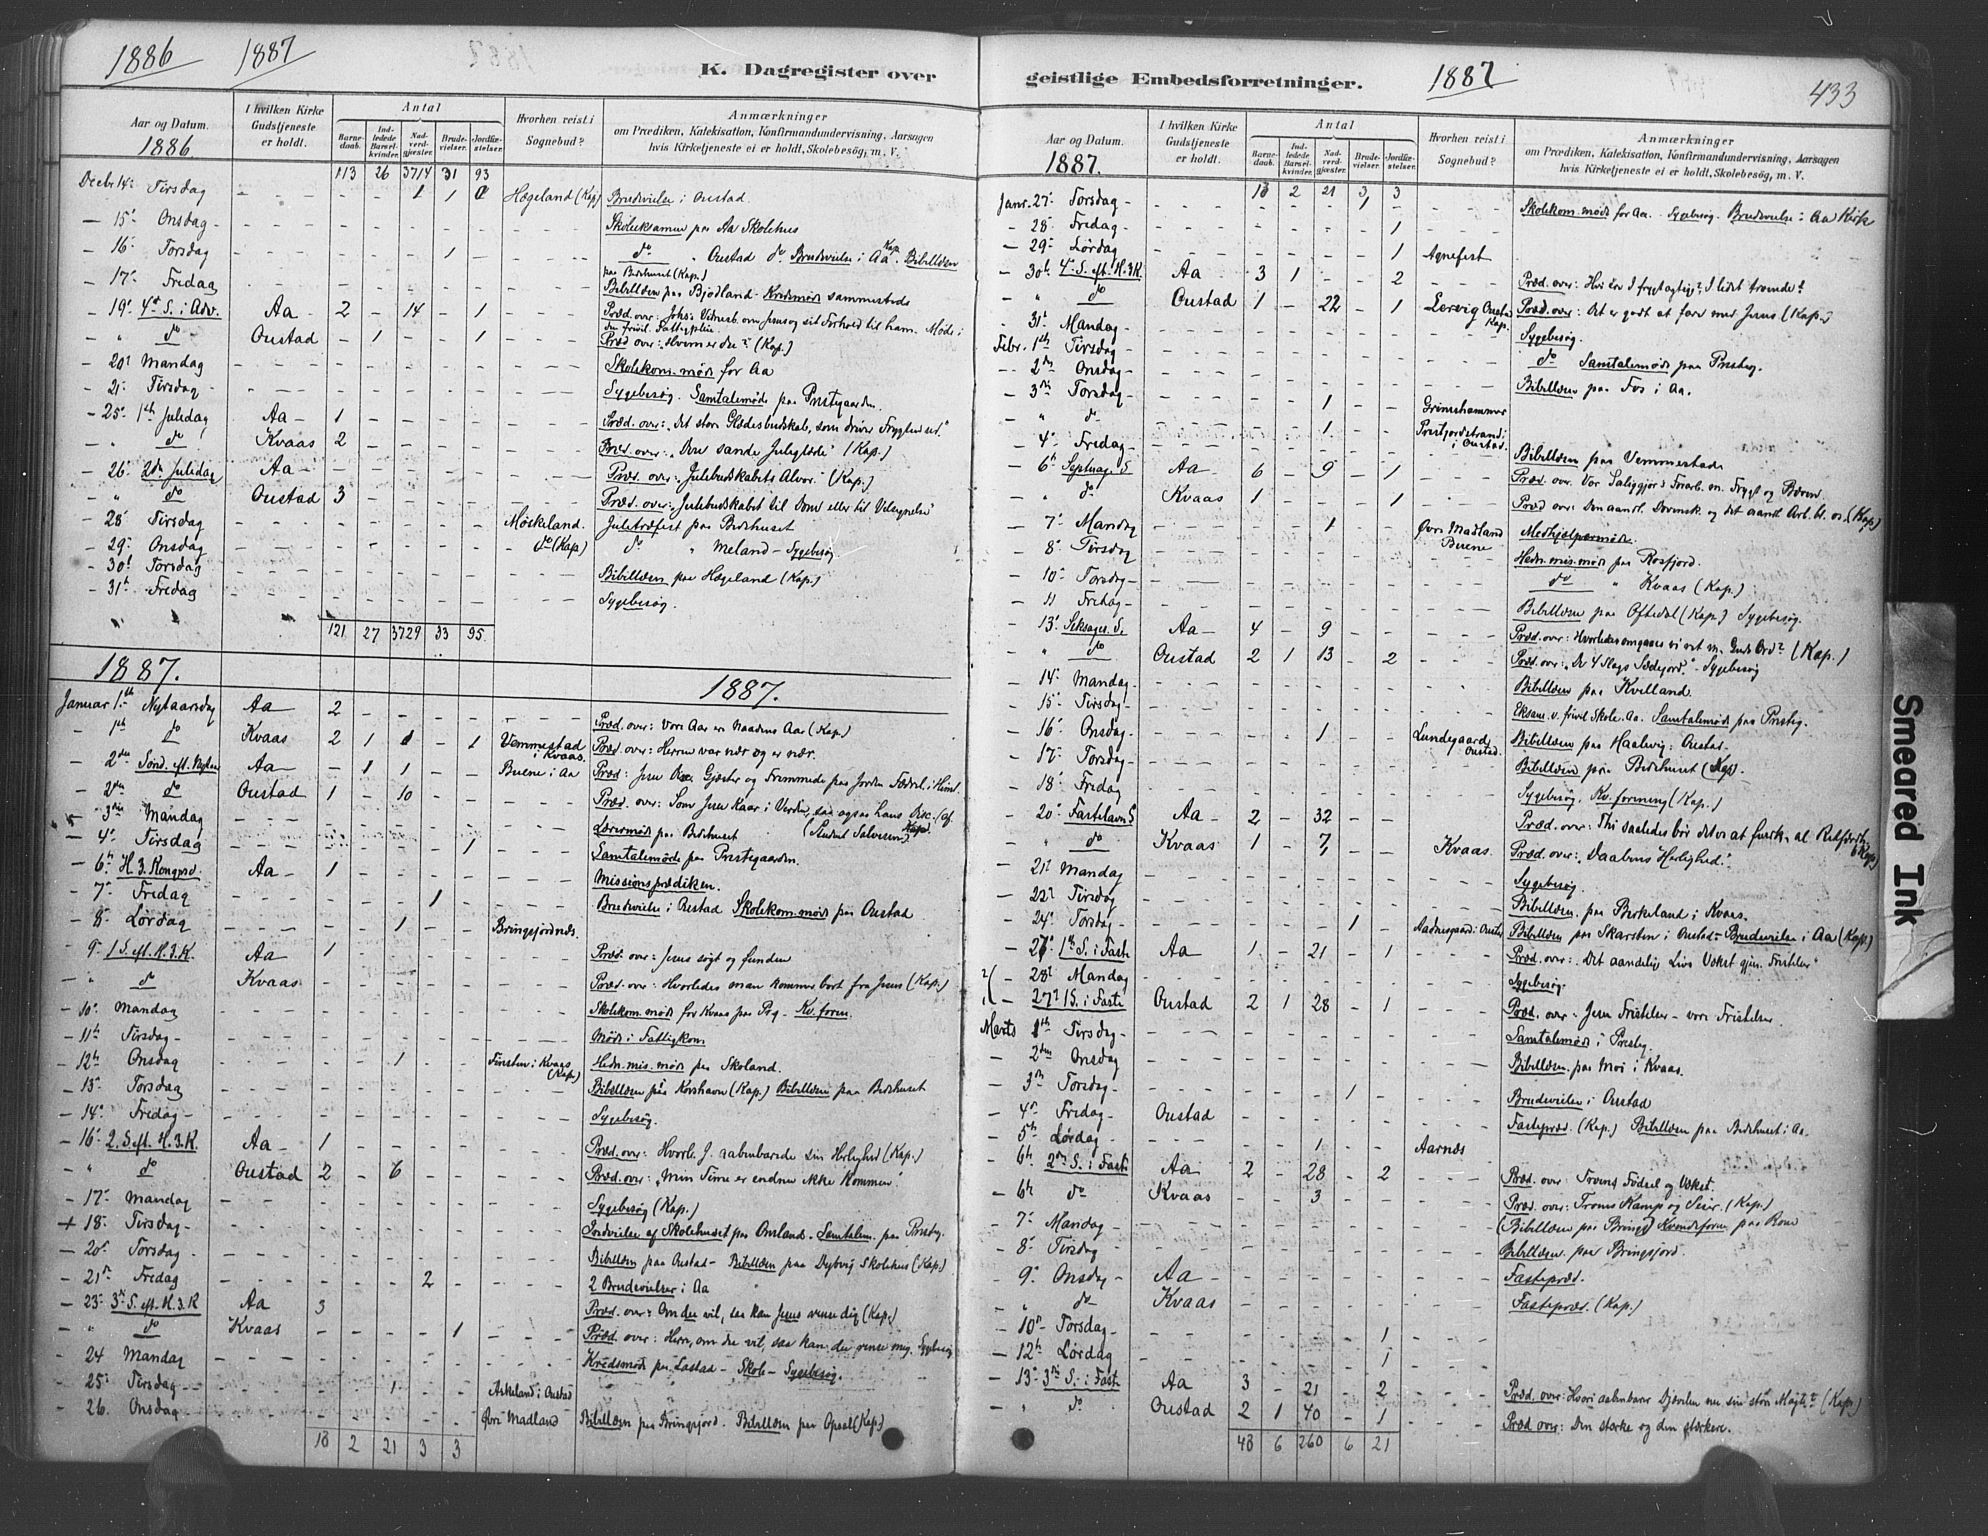 1886 1887
K. Dagregister over
Aar og Datum.
1886
I hvilken Kirke Gudstjeneste er holdt.
Antal
Barnedaab.
Indledede Barselkvinder.
Nadverdgjester.
Brudevielser.
Jordfæstelser.
Hvorhen reist i Sognebud?
Anmærkninger
om Prædiken, Katekisation, Konfirmandundervisning, Aarsagen
hvis Kirketjeneste ei er holdt, Skolebesög, m. V.
113 26 3714 31 93
Decbr 14 Tirsdag - - - 1 1 Hægeland (Kap) Brudevielse i Oustad.
— 15 Onsdag - Skoleexamen paa Aa Skolehus
— 16 Torsdag 1 do " Oustad do Brudevielse i Aa Kap. Bibellæsn
paa Bedehuset (Kap)
— 17 Fredag Bibellæsn paa Bjødland - Kredsmøde sammesteds
— 19 4de S. i Adv. Aa - 2 - 14 - 1 Præd. over: Johs: Vidnesb. om Jesus og sit Forhold til ham. Møde i
den frivil. Fattigpleie
" do Oustad - 1 - - 1 Præd over: "Hvem er du?" (Kap.)
— 20 Mandag Skolekom. møde for Aa
— 21 Tirsdag - Sygebesøg. Samtalemøde paa Prestgaarden.
— 25 1ste Juledag Aa - 1 Præd. over: "Det store Glædesbudskab, som driver Frygten ud."
" do Kvaas 2 Præd. over: "Den sande Juleglæde" (Kap.)
— 26 2den Juledag Aa - Præd. over: "Julebudskabets Alvor" (Kap.)
" do Oustad 3 Præd. over: "Julebudskabet til Dom eller til Velsignelse"
— 28 Tirsdag Møskeland. Juletræfest paa Bedehuset
— 29 Onsdag do (Kap) do " Meland - Sygebesøg
— 30 Torsdag Bibellæsn paa Hægeland (Kap.)
— 31 Fredag Sygebesøg.
121 27 3729 33 95.
1887. 1887.
Januar 1ste Nytaarsdag Aa 2 Præd. over: Vore Aar er Naadens Aar (Kap.)
- 1ste do Kvaas 2 1 1 - 1 Vemmestad i Kvaas. Præd. over: Herren var nær og er nær.
- 2den Sønd. eft. Nytaar Aa - - 1 1 Buene i Aa Præd: Jesu Gjæster og Fremmede paa Jorden
- 2den do Oustad 1 - 10 Præd. over: Som Jesu kaar i Verden, saa ogsaa hans Disc. (af
Student Salvesen)
- 3die Mandag Lærermøde paa Bedehuset
- 4 Tirsdag 1 Samtalemøde paa Prestegaarden.
- 6 H. 3. Kongersd. Aa - 1 Missionsprædiken.
- 7 Fredag 1 Brudevielse i Oustad Skolekom. møde paa Oustad
- 8 Lørdag 1 Bringsfjordnæs.
- 9 1 S. eft. H. 3. K. Aa 1 Præd. over: Jesus søgt og funden
" do Kvaas Præd. over: Hvorledes man kommer bort fra Jesus (Kap.)
- 10 Mandag Skolekom. møde for Kvaas paa Pg - Kv. foren.
- 11 Tirsdag - Møde i Fattigkom
- 12 Onsdag 1 i Kvaas (Kap) Hedn. mis. møde paa Skoland.
- 13 Torsdag Bibellæsn paa Korshavn (Kap.) Bibellæsn paa Bedehuset
- 14 Fredag - Sygebesøg.
- 16 2. S. eft. H. 3. K. Aa - 1 Præd. over: Hvorl. J. aabenbarede sin Herlighed (Kap.)
" do Oustad 2 - 6 Præd. over: "Min Time er endnu ikke kommen"
- 17 Mandag Sygebesøg (Kap.)
+ 18 Tirsdag - Indvielse af Skolehuset paa Ousland. Samtalem. paa Prstg.
- 20 Torsdag - Bibellæsn paa Oustad - Bibellæsn paa Dybvig Skolehus (Kap.)
- 21 Fredag 2 2 Brudevielser i Aa
- 23 3de S. eft. H. 3. K Aa 3 Præd. over: Om du vil, saa kan Jesus rense dig (Kap.)
" do Kvaas 1 Præd. over: Herre, om du vil, saa kan du rense mig. Sygebesøg
- 24 Mandag Kredsmøde paa Lastad - Skole - Sygebesøg.
- 25 Tirsdag - 1 Askeland i Oustad
- 26. Onsdag - Øvre Madland Bibellæsn paa Bringsfjord. Bibellæsn paa Opsal (Kap.)
18 2 21 3 3
geistlige Embedsforretninger. 1887 433
Aar og Datum.
1887.
I hvilken Kirke Gudstjeneste er holdt.
Antal
Barnedaab.
Indledede Barselkvinder.
Nadverdgjester.
Brudevielser.
Jordfæstelser.
Hvorhen reist i Sognebud?
Anmærkninger
om Prædiken, Katekisation, Konfirmandundervisning, Aarsagen
hvis Kirketjeneste ei er holdt, Skolebesög, m. V.
18 2 21 3 3
Janr. 27 Torsdag - 1 Skolekom. møde for Aa. Sygebesøg. Brudevielse i Aa Kirke
- 28 Fredag - 1
- 29 Lørdag - 1 Agnefest
- 30 4de S. eft. H. 3. K. Aa 3 1 2 Præd. over: Hvi ere I frygtagtige, I lidet troende?
" do Oustad 1 - 22 - 1 Lervig Oustad Kap. Præd. over: Det er godt at fare med Jesus (Kap.)
31 Mandag - Sygebesøg.
Febr. 1ste Tirsdag - do Samtalemøde paa Prestg.
- 2den Onsdag - Bibellæsn paa Fos i Aa.
- 3die Torsdag - 1 Grimshammer
" do 1 i Oustad.
- 4 Fredag - Bibellæsn paa Vemmestad
- 6 Septuag. S Aa - 6 - 9 - 1 Præd. over: Vor Saliggjør. Forarb. m. Frygt og Bæven
" do Kvaas 1 1 Præd over: Den aandl. Dovensk. og det aandl. Arb. (Kap)
- 7 Mandag 1 Øvre Madland
- 8 Tirsdag Buene Medhjælpermøde.
- 10 Torsdag - Hedn. mis. møde paa Rosfjord.
do " Kvaas (Kap.)
- 11 Fredag - Bibellæsn paa Oftedal (Kap.) Sygebesøg.
- 13 Seksages. S. Aa - 4 - 9 Præd. over: Hvorledes omgaaes vi ret m. Guds Ord? (Kap.)
" do Oustad 2 1 13 - 2 Præd. over: "De 4 Slags Sædejord." - Sygebesøg
- 14 Mandag - Bibellæsn paa Kvelland.
- 15 Tirsdag - Eksam. v. frivil Skole. Aa. Samtalemøde paa Prestg.
- 16 Onsdag - 1 Lundegaard Oustad. Bibellæsn paa Haalvig i Oustad
- 17 Torsdag - Bibellæsn paa Bedehuset (Kap).
- 18 Fredag Sygebesøg. Kv. forening (Kap.)
- 20 Fastelavns S Aa - 2 - 32 Præd. over: Thi saaledes bør det os at fuldk. al Retfærdh. (Kap)
do Kvaas 1 - 7 Kvaas Præd. over: "Daabens Herlighed".
- 21 Mandag Sygebesøg.
- 22 Tirsdag - Bibellæsn. paa Birkeland i Kvaas.
- 24 Torsdag - 1 i Oustad Bibellæsn paa Skarsten i Oustad - Brudevielse i Aa (Kap.)
- 27 1ste S. i Faste Aa 1 - 21 - 1 Præd. over: "Det aandelig Livs Vækst gjen. Fristelser"
2/( - 28 Mandag Sygebesøg.
1/( - 27 1 S. i Faste Oustad 2 1 28 - 1 Præd. over: Jesu Fristelser - vore Fristelser
Marts 1ste Tirsdag - Samtalemøde i Prestg.
- 2den Onsdag Bibellæsn. paa Moi i Kvaas.
- 3die Torsdag - 1 Brudevielse i Oustad
- 4 Fredag - Oustad Fastepræd. (Kap.) Bibellæsn paa Bedehuset i Aa.
- 5 Lørdag - 1 Aarnæs
- 6 2den S. i Faste Aa - 2 - 28 - 2 Præd. over: Troens Fødsel og Vækst.
- 6 do Kvaas 3 Præd. over: Troens Kamp og Seier. (Kap.)
- 7 Mandag - (Bibellæsn paa Brings) Kvindeforen. paa Rom
- 8 Tirsdag Bibellæsn. paa Bringsfjord.
- 9 Onsdag - Aa - Fastepræd.
" do Kvaas Fastepræd. (Kap.)
- 10 Torsdag - 1
- 12 Lørdag 1
- 13 3die S. i Faste Aa 3 - 21 - 2 Præd. over: Hvori aabenbarer Djævelen nu sin store Magt? (Kap.)
" do Oustad 2 1 40 - 1 Præd. over: Den stærke og den stærkere.
48 6 260 6 21
Smeared Ink